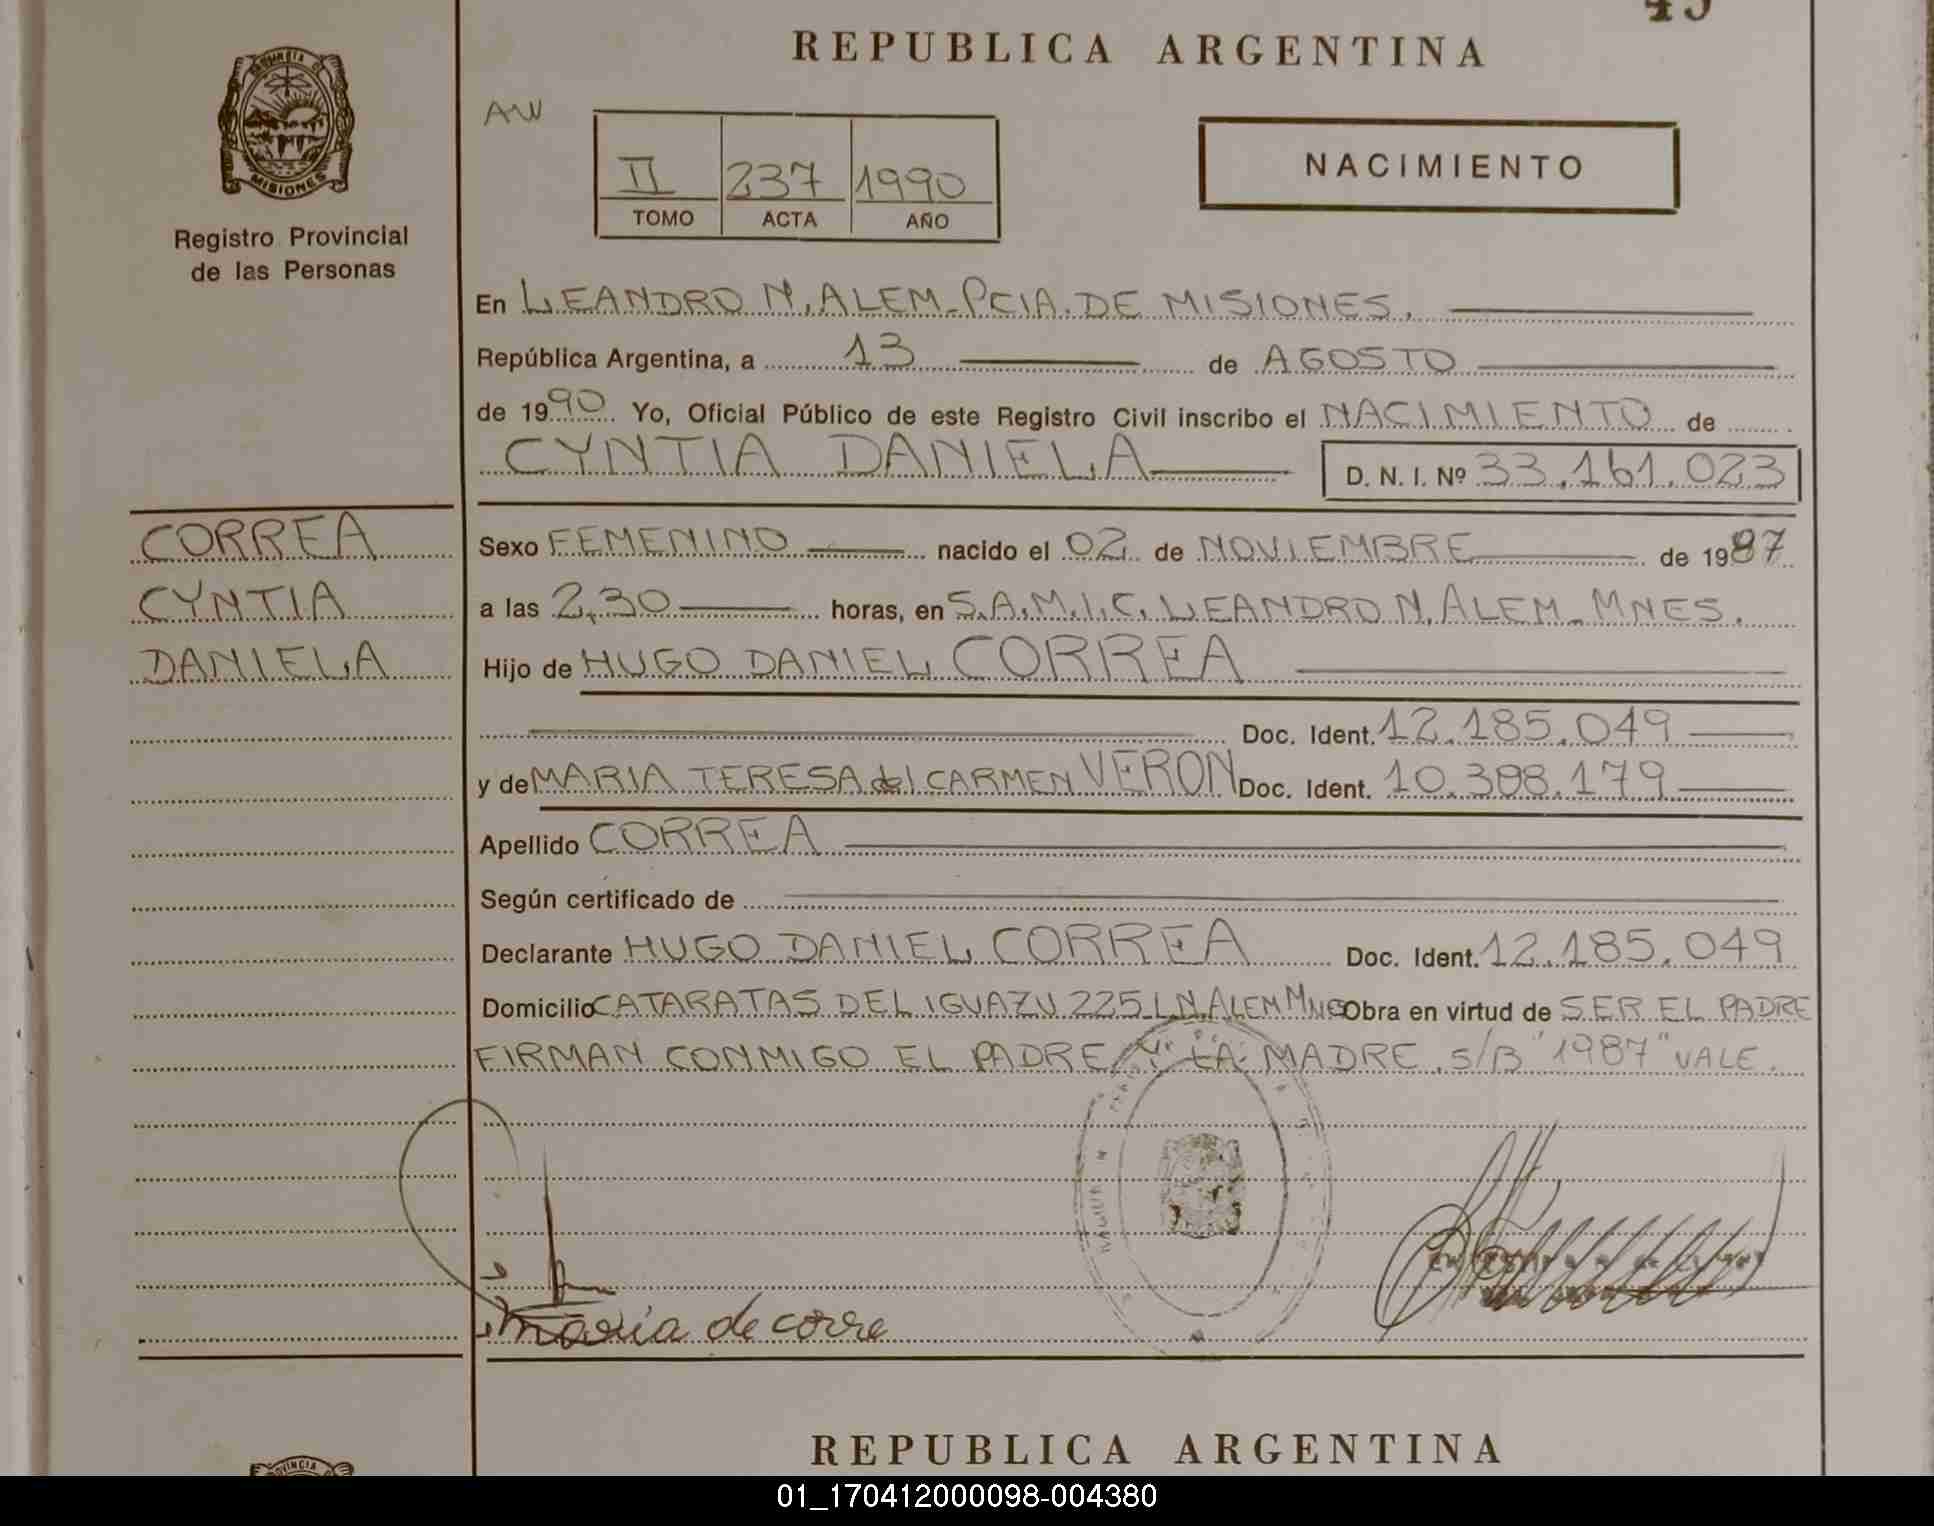 45
REPUBLICA ARGENTINA
PROVINCIA DE
MISIONES
Registro Provincial
de las Personas
AW
II 237 1990
TOMO ACTA AÑO
NACIMIENTO
En LEANDRO N. ALEM - PCIA. DE MISIONES.
República Argentina, a 13 de AGOSTO
de 1990 Yo, Oficial Público de este Registro Civil inscribo el NACIMIENTO de
CYNTIA DANIELA D. N. I. Nº 33.161.023
CORREA
CYNTIA
DANIELA
Sexo FEMENINO nacido el 02 de NOVIEMBRE de 1987
a las 2,30 horas, en S.A.M.I.C. LEANDRO N. ALEM - MNES.
Hijo de HUGO DANIEL CORREA
Doc. Ident. 12.185.049
y de MARIA TERESA del CARMEN VERON Doc. Ident. 10.388.179
Apellido CORREA
Según certificado de
Declarante HUGO DANIEL CORREA Doc. Ident. 12.185.049
Domicilio CATARATAS DEL IGUAZU 225 L.N. ALEM Mnes Obra en virtud de SER EL PADRE
FIRMAN CONMIGO EL PADRE Y LA MADRE. S/B "1987" VALE.
maria de corre
REPUBLICA ARGENTINA
PROVINCIA
01_170412000098-004380